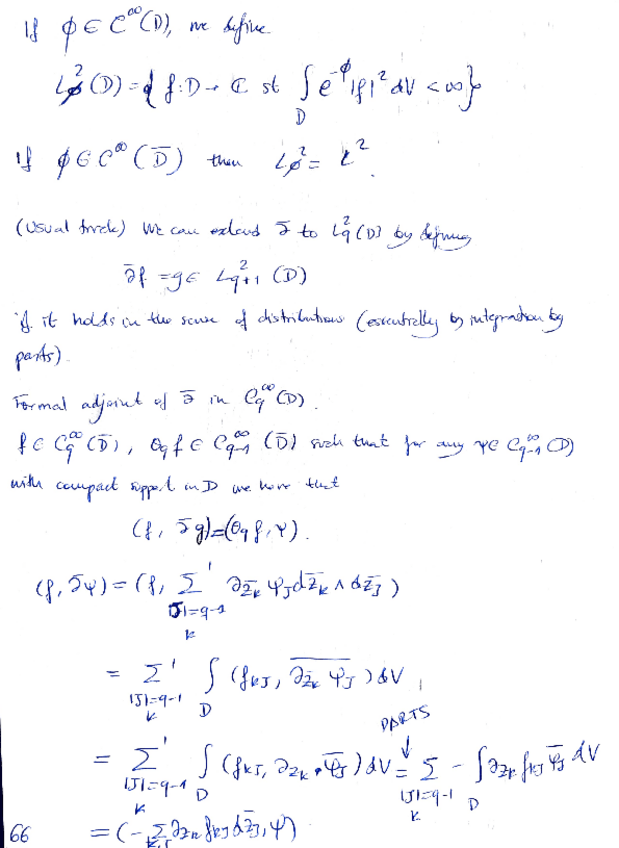 If φ ∈ C^∞(D), we define
L²_φ(D) = { f: D → ℂ st ∫_D e^{-φ} |f|² dV < ∞ }
If φ ∈ C^∞(D̄) then L²_φ = L².
(Usual trick) We can extend ∂̄ to L²_q(D) by defining
∂̄f = g ∈ L²_{q+1}(D)
if it holds in the sense of distributions (essentially by integration by
parts).
Formal adjoint of ∂̄ in C^∞_q(D).
f ∈ C^∞_q(D̄), θ_q f ∈ C^∞_{q-1}(D̄) such that for any ψ ∈ C^∞_{q-1}(D)
with compact support in D we have that
(f, ∂̄g) = (θ_q f, ψ).
(f, ∂̄ψ) = (f, Σ'_{|J|=q-1, k} ∂_{z̄_k} ψ_J dz̄_k ∧ dz̄_J)
= Σ'_{|J|=q-1, k} ∫_D (f_{kJ}, \overline{∂_{z̄_k} ψ_J}) dV
PARTS
= Σ'_{|J|=q-1, k} ∫_D (f_{kJ}, ∂_{z_k} ψ̄_J) dV = Σ_{|J|=q-1, k} - ∫_D ∂_{z_k} f_{kJ} ψ̄_J dV
66 = (- Σ_{k,J} ∂_{z_k} f_{kJ} dz̄_J, ψ)